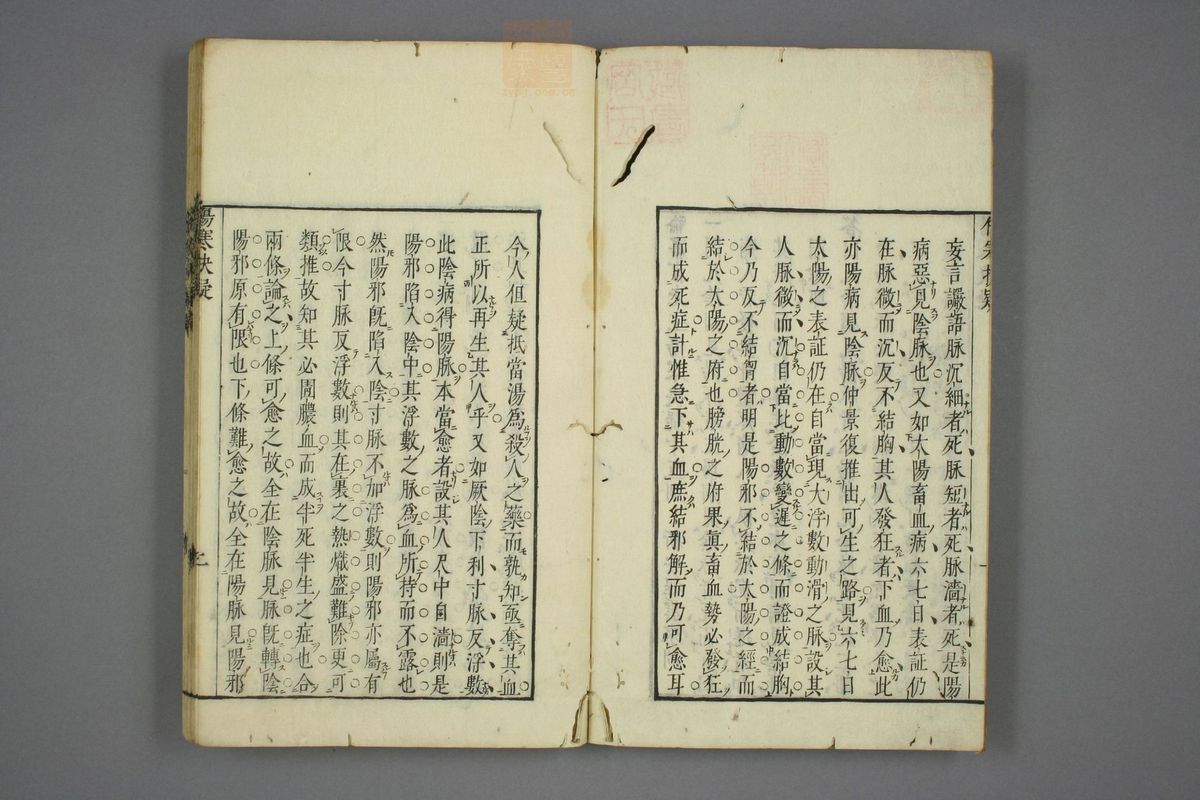 妄言讝語脉沉細者死脉短者死脉濇者死是陽
病惡見陰脉也又如太陽畜血病六七日表証仍
在脉微而沉反不結胸其人發狂者下血乃愈此
亦陽病見陰脉仲景復推出可生之路見六七日
太陽之表証仍在自當現大浮數動滑之脉設其
人脉微而沉自當比動數變遲之條而證成結胸
今乃反不結胷者明是陽邪不結於太陽之經而
結於太陽之府也膀胱之府果眞畜血勢必發狂
而成死症計惟急下其血庶結邪解而乃可愈耳
今人但疑抵當湯爲殺人之藥而孰知亟奪其血
正所以再生其人乎又如厥陰下利寸脉反浮數
此陰病得陽脉本當愈者設其人尺中自濇則是
陽邪陷入陰中其浮數之脉爲血所持而不露也
然陽邪旣陷入陰寸脉不加浮數則陽邪亦屬有
限今寸脉反浮數則其在裏之熱熾盛難除更可
類推故知其必圊膿血而成半死半生之症也合
兩條論之上條可愈之故全在陰脉見脉旣轉陰
陽邪原有限也下條難愈之故全在陽脉見陽邪
傷寒抉疑